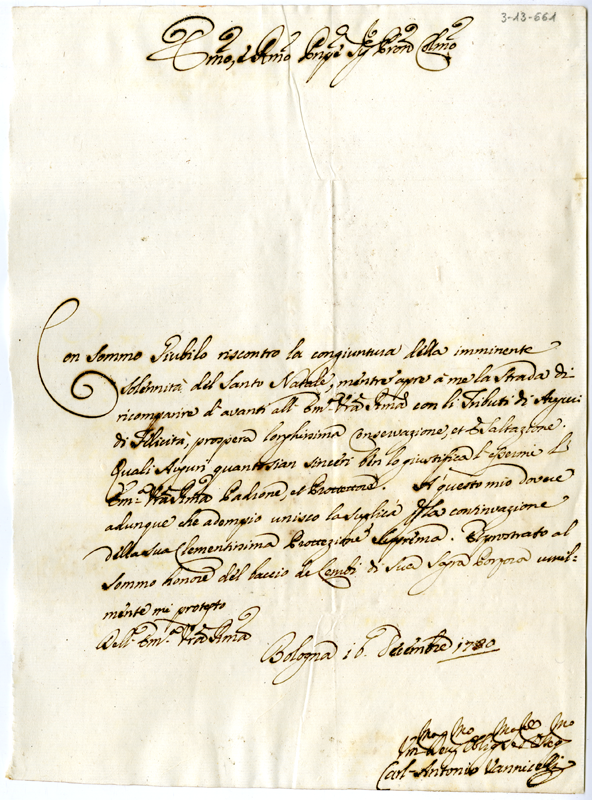 3-13-661
Em̃o, e Rm̃o Pñpe Sig.r Pron̄ Colm̃o
Con Sommo Giubilo riscontro la congiuntura della imminente
Solennità del Santo Natale, mentre apre à me la Strada di
ricomparire d'avanti all' Em.ª Vrã Rmã con li Tributi di Auguri
di Felicità, prospera longhissima Conservazione, et Esaltazione.
Quali Auguri quanto sian sinceri ben lo giustifica l'essermi l'
Em.ª Vrã Rmã Padrone, et Protettore. A questo mio dovere
adunque che adempio unisco la suplica per la continuazione
della sua Clementissima Protezzione Suprema. E prostrato al
sommo honore del baccio de Lembi di sua Sagra Porpora umil-
mente mi protesto
Dell' Em.ª Vrã Rmã
Bologna 16 decembre 1780
Carl' Antonio Vannicelli